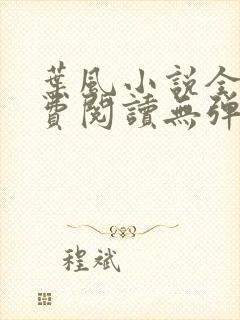 葉風小説全
費閱讀無彈
程斌